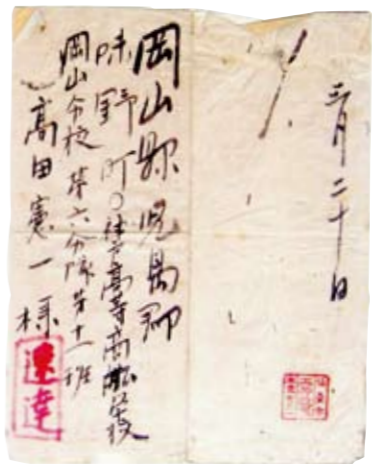 三月二十日
〆
岡山縣児島郡
味野町 高等商船学校
岡山分校 第六分隊第十一班
高田憲一様
速達